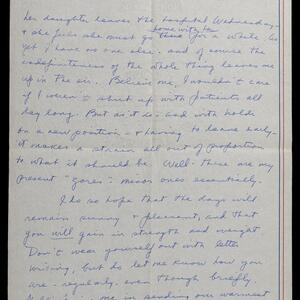 her daughter leaves the hospital Wednesday -
& she feels she must go home with her for a while. As
yet I have no one else - and of course the
indefiniteness of the whole thing leaves me
up in the air. Believe me, I wouldn't care
if I weren't shut up with patients all
day long. But as it is - and with holds
on a new position - & having to leave early -
it makes a strain all out of proportion
to what it should be. Well - these are my
present "gores" - minor ones essentially.
I do so hope that the days will
remain sunny & pleasant, and that
you will gain in strength and weight
Don't wear yourself out with letter
writing, but do let me know how you
are - regularly - even though briefly.
me in sending our warmest